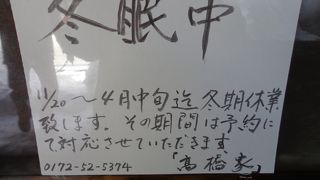 冬眠中
11/20〜4月中旬迄 冬期休業
致します。その期間は予約に
て対応させていただきます
0172-52-5374 「高橋家」